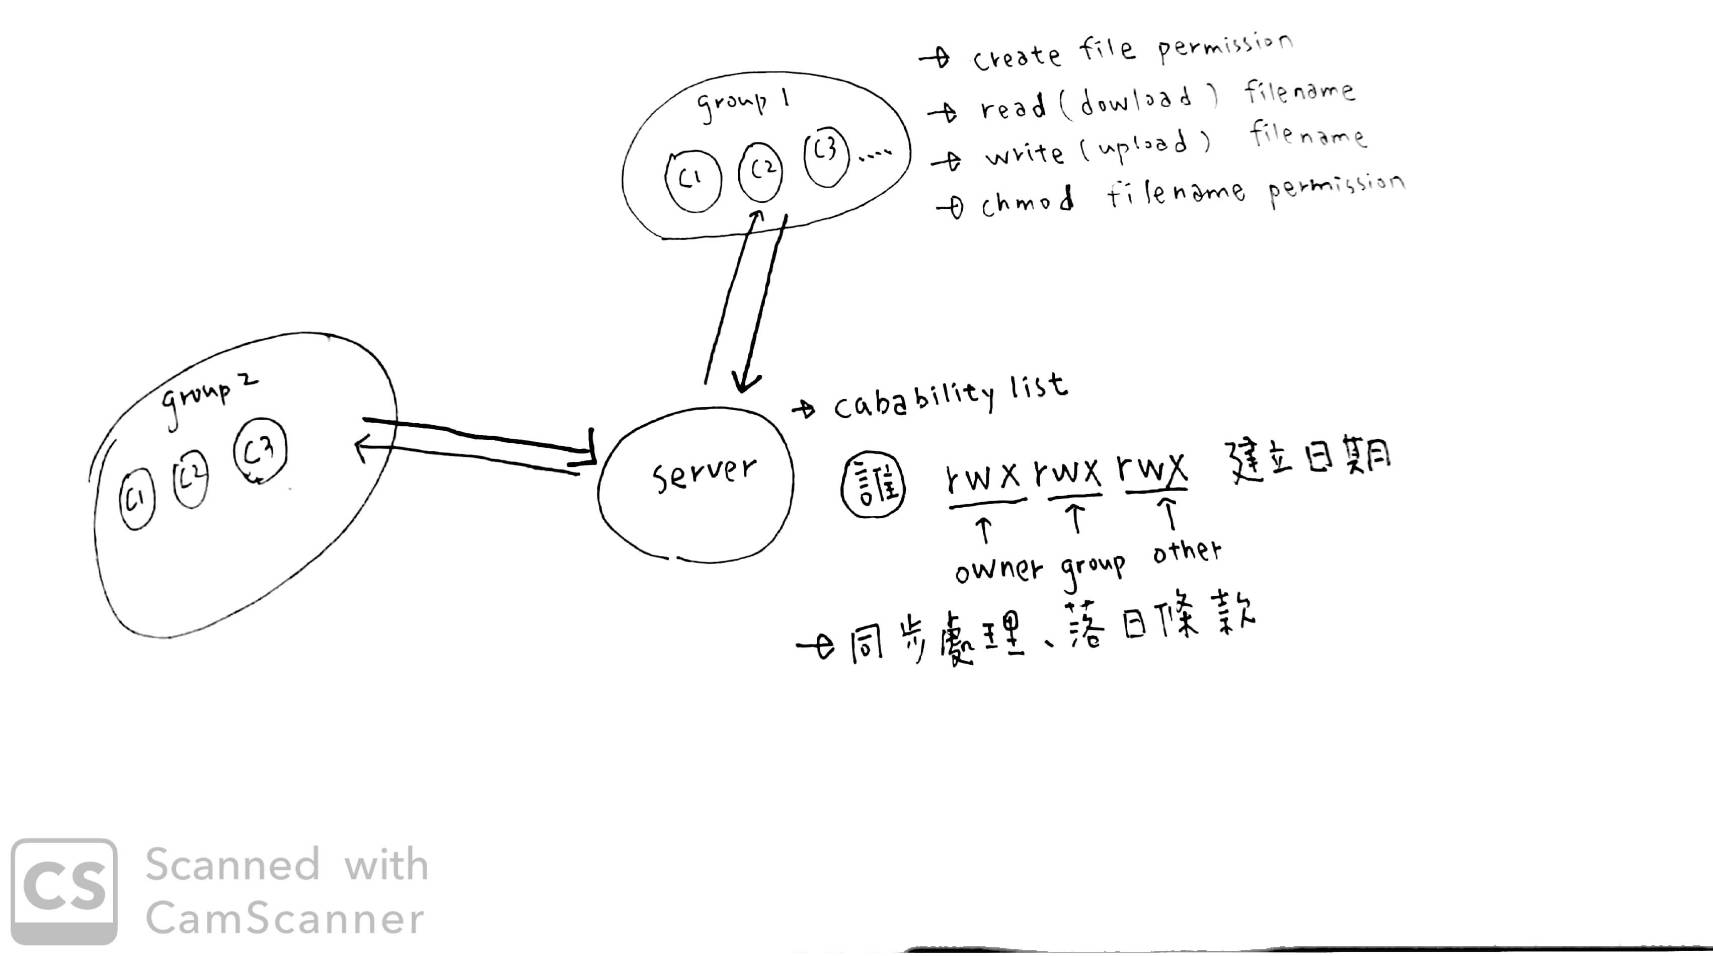 group 1
C1 C2 C3 ....
→ create file permission
→ read (dowload) filename
→ write (upload) filename
→ chmod filename permission
group 2
C1 C2 C3
server
→ cabability list
誰 rwx rwx rwx 建立日期
↑ ↑ ↑
owner group other
→ 同步處理、落日條款
CS Scanned with
CamScanner